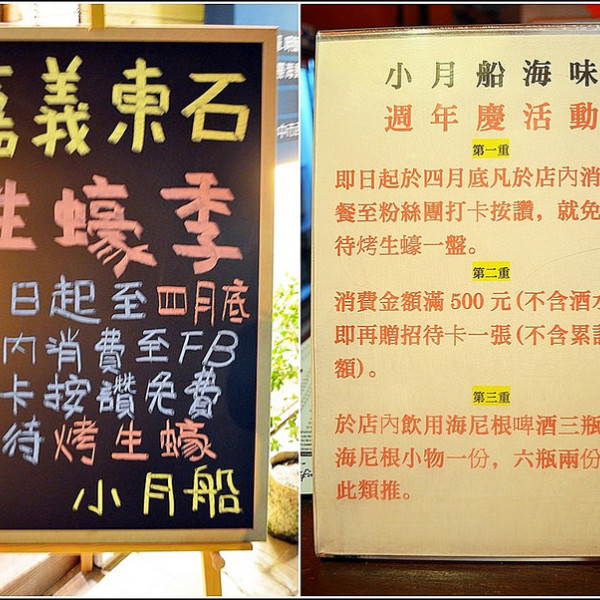 嘉義東石
生蠔季
日起至四月底
內消費至FB
卡按讚免費
待烤生蠔
小月船
小月船海味
週年慶活動
第一重
即日起於四月底凡於店內消
餐至粉絲團打卡按讚，就免
待烤生蠔一盤。
第二重
消費金額滿 500 元(不含酒水
即再贈招待卡一張(不含累計
額)。
第三重
於店內飲用海尼根啤酒三瓶
海尼根小物一份，六瓶兩份
此類推。